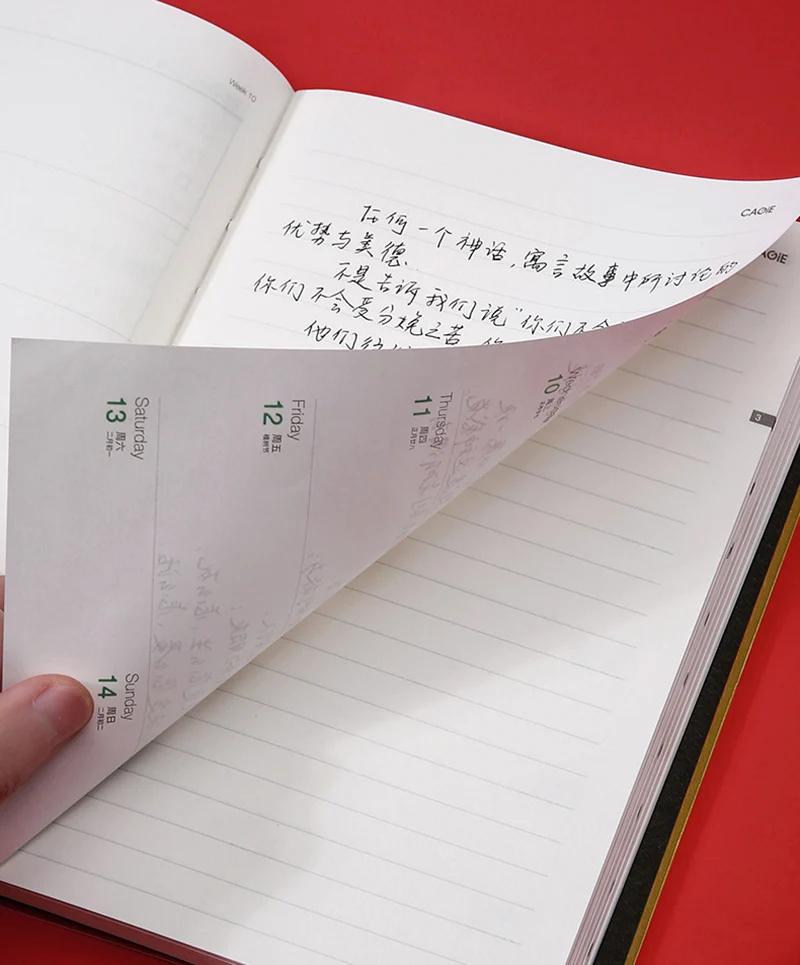 Week 10
CAGIE
任何一个神话,寓言故事中所讨论的
优势与美德.
不是告诉我们说“你们不会
你们不会受分娩之苦
他们
CAGIE
3
10
Thursday
11 周四
正月廿八
Friday
12 周五
植树节
Saturday
13 周六
二月初一
Sunday
14 周日
二月初二